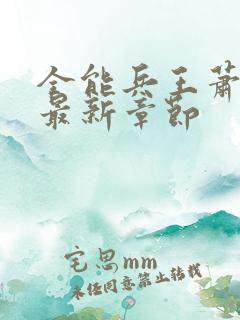 全能兵王萧
最新章节
宅思mm
未经同意禁止转载